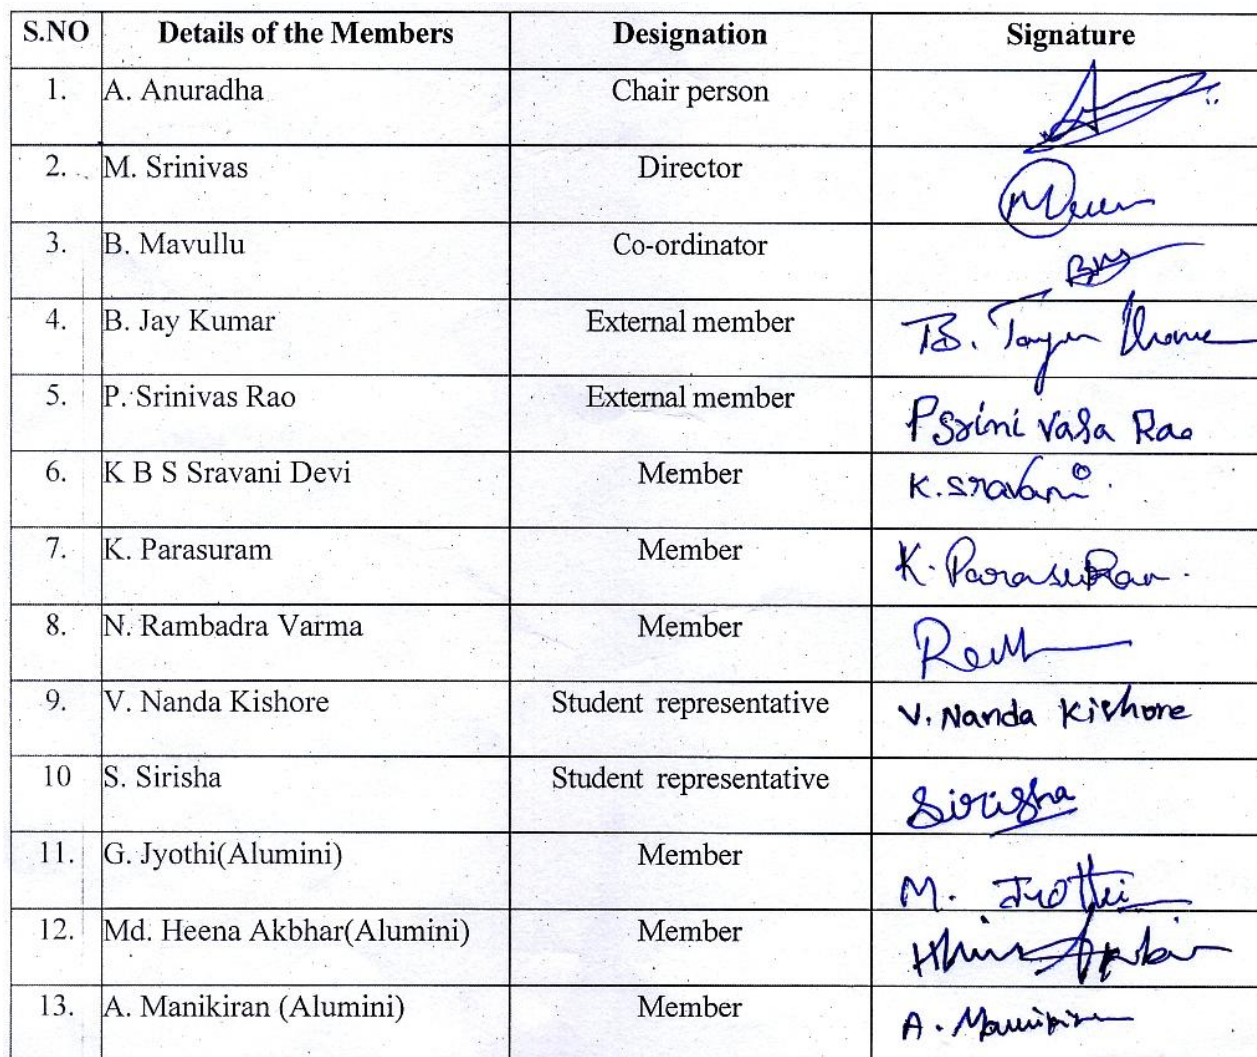 S.NO Details of the Members Designation Signature
1. A. Anuradha Chair person
2. M. Srinivas Director
3. B. Mavullu Co-ordinator
4. B. Jay Kumar External member B.
5. P. Srinivas Rao External member P Srinivasa Rao
6. K B S Sravani Devi Member K. Sravani
7. K. Parasuram Member K. ParasuRam
8. N. Rambadra Varma Member
9. V. Nanda Kishore Student representative V. Nanda Kishore
10 S. Sirisha Student representative Sirisha
11. G. Jyothi(Alumini) Member M. Jyothi
12. Md. Heena Akbhar(Alumini) Member
13. A. Manikiran (Alumini) Member A.